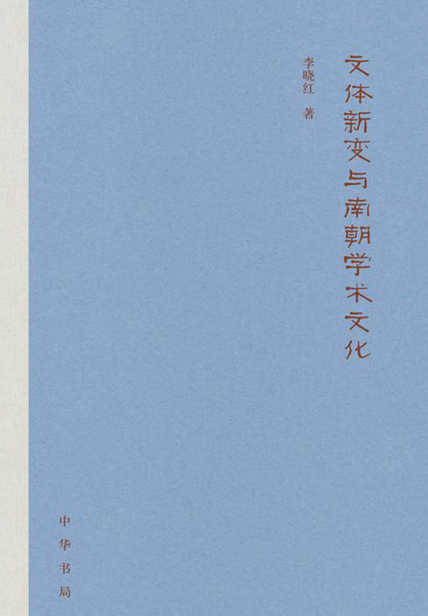 文体新变与南朝学术文化
李晓红 著
中华书局